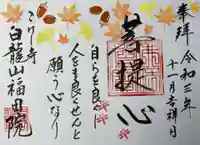 奉拝
令和三年
十一月吉祥日
菩提心
自らを良く
人をも良くせんと
願う心なり
こけし寺
白龍山福田院